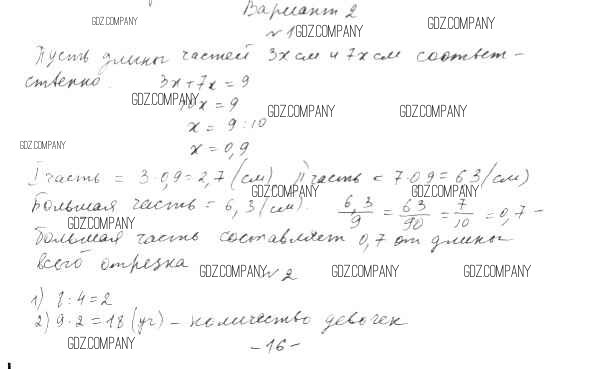 Вариант 2
GDZ.COMPANY
GDZ.COMPANY
№1 GDZ.COMPANY
Пусть длины частей 3х см и 7х см соответ-
ственно. 3х+7х = 9
GDZ.COMPANY
10х = 9
GDZ.COMPANY
GDZ.COMPANY
х = 9:10
GDZ.COMPANY
х = 0,9
I часть = 3·0,9=2,7 (см) II часть = 7·0,9=6,3 (см)
GDZ.COMPANY
GDZ.COMPANY
Большая часть = 6,3 (см). 6,3/9 = 63/90 = 7/10 = 0,7 -
GDZ.COMPANY
большая часть составляет 0,7 от длины
всего отрезка
GDZ.COMPANY
№2
GDZ.COMPANY
GDZ.COMPANY
1) 8:4=2
2) 9·2=18 (уч) - количество девочек
GDZ.COMPANY
-16-